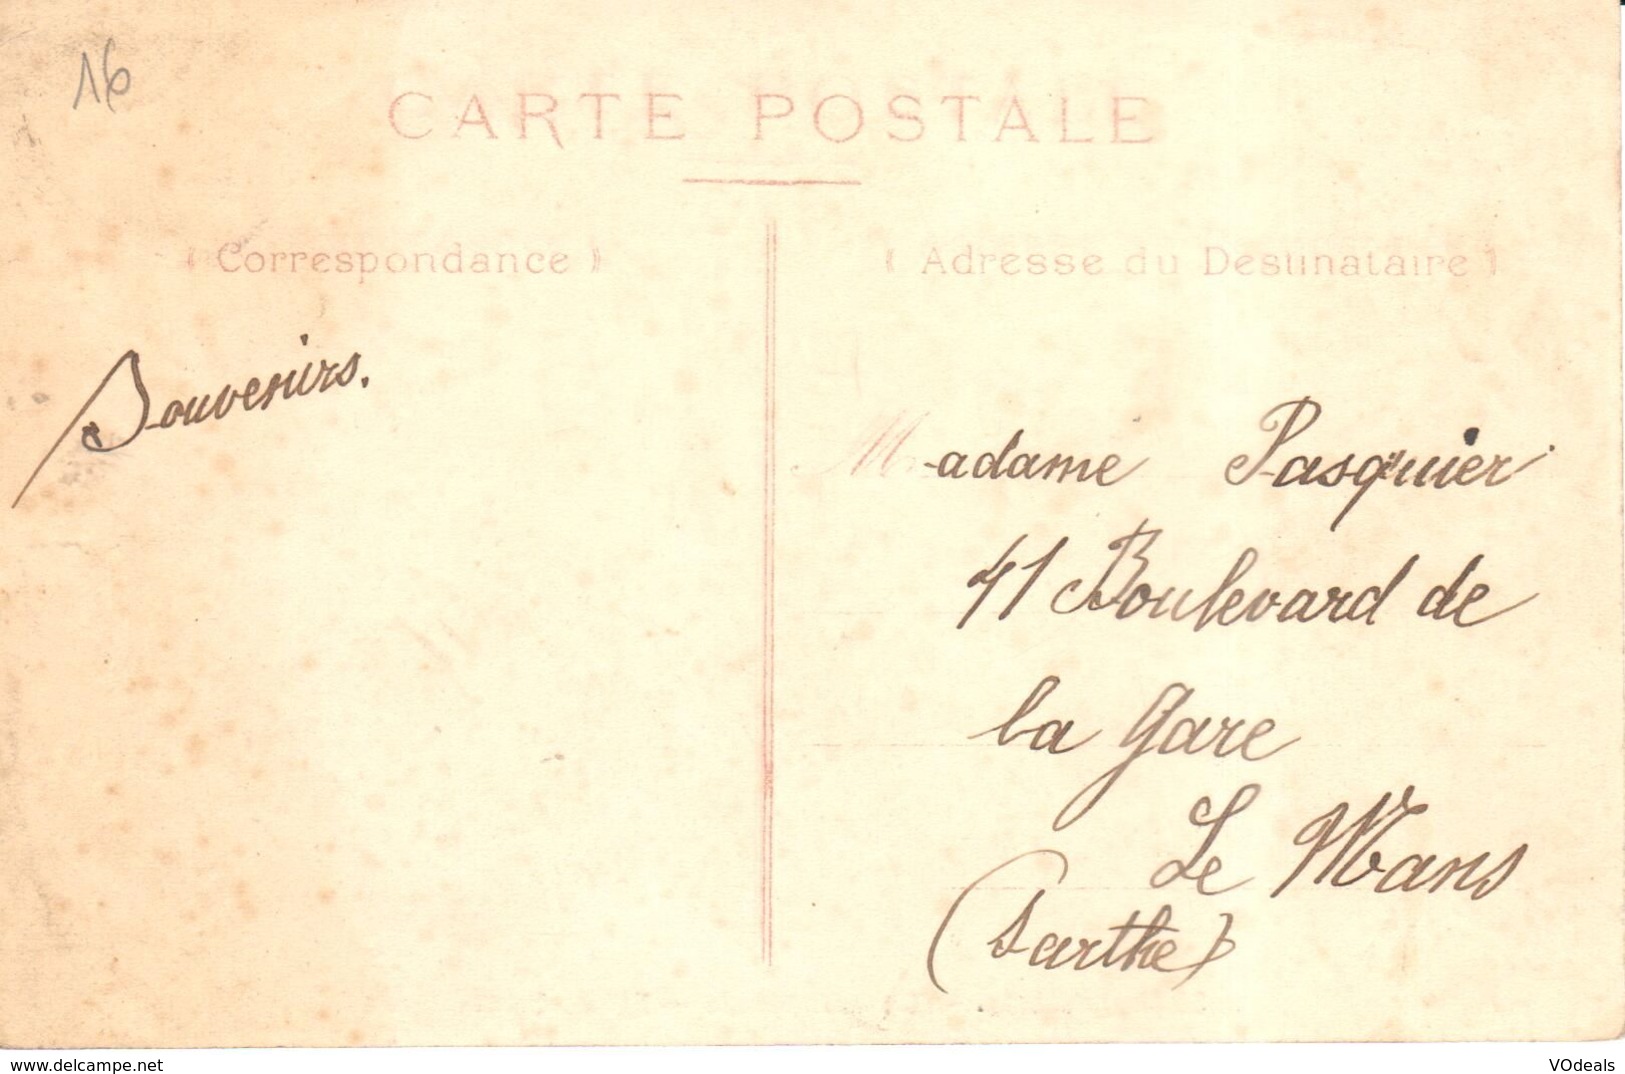 16
CARTE POSTALE
( Correspondance )
( Adresse du Destinataire )
Souvenirs.
Madame Pasquier
41 Boulevard de
la Gare
Le Mans
(Sarthe)
www.delcampe.net
VOdeals